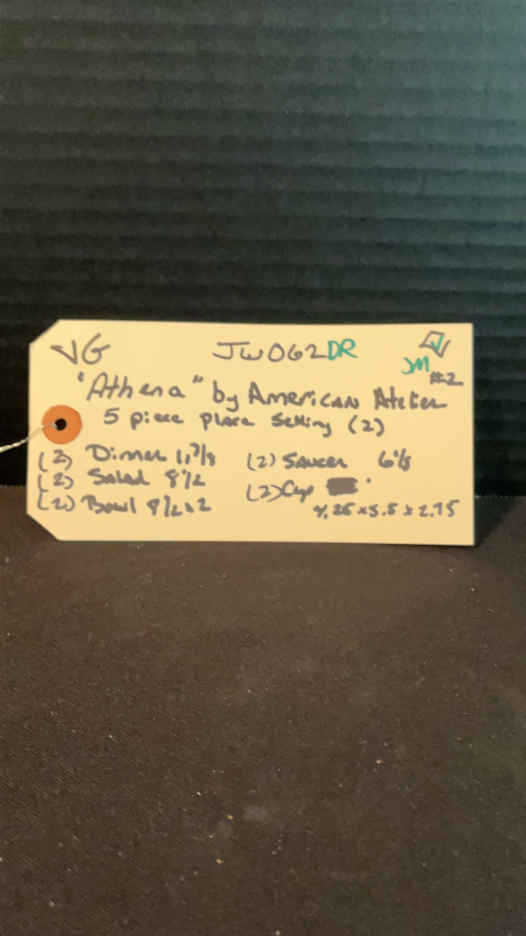 VG JW062DR
JM #2
"Athena" by American Atelier
5 piece place setting (2)
(2) Dinner 11 3/8 (2) Saucer 6 1/8
(2) Salad 8 1/2 (2) Cup
(2) Bowl 8 1/2 x 2 4.25 x 5.5 x 2.75